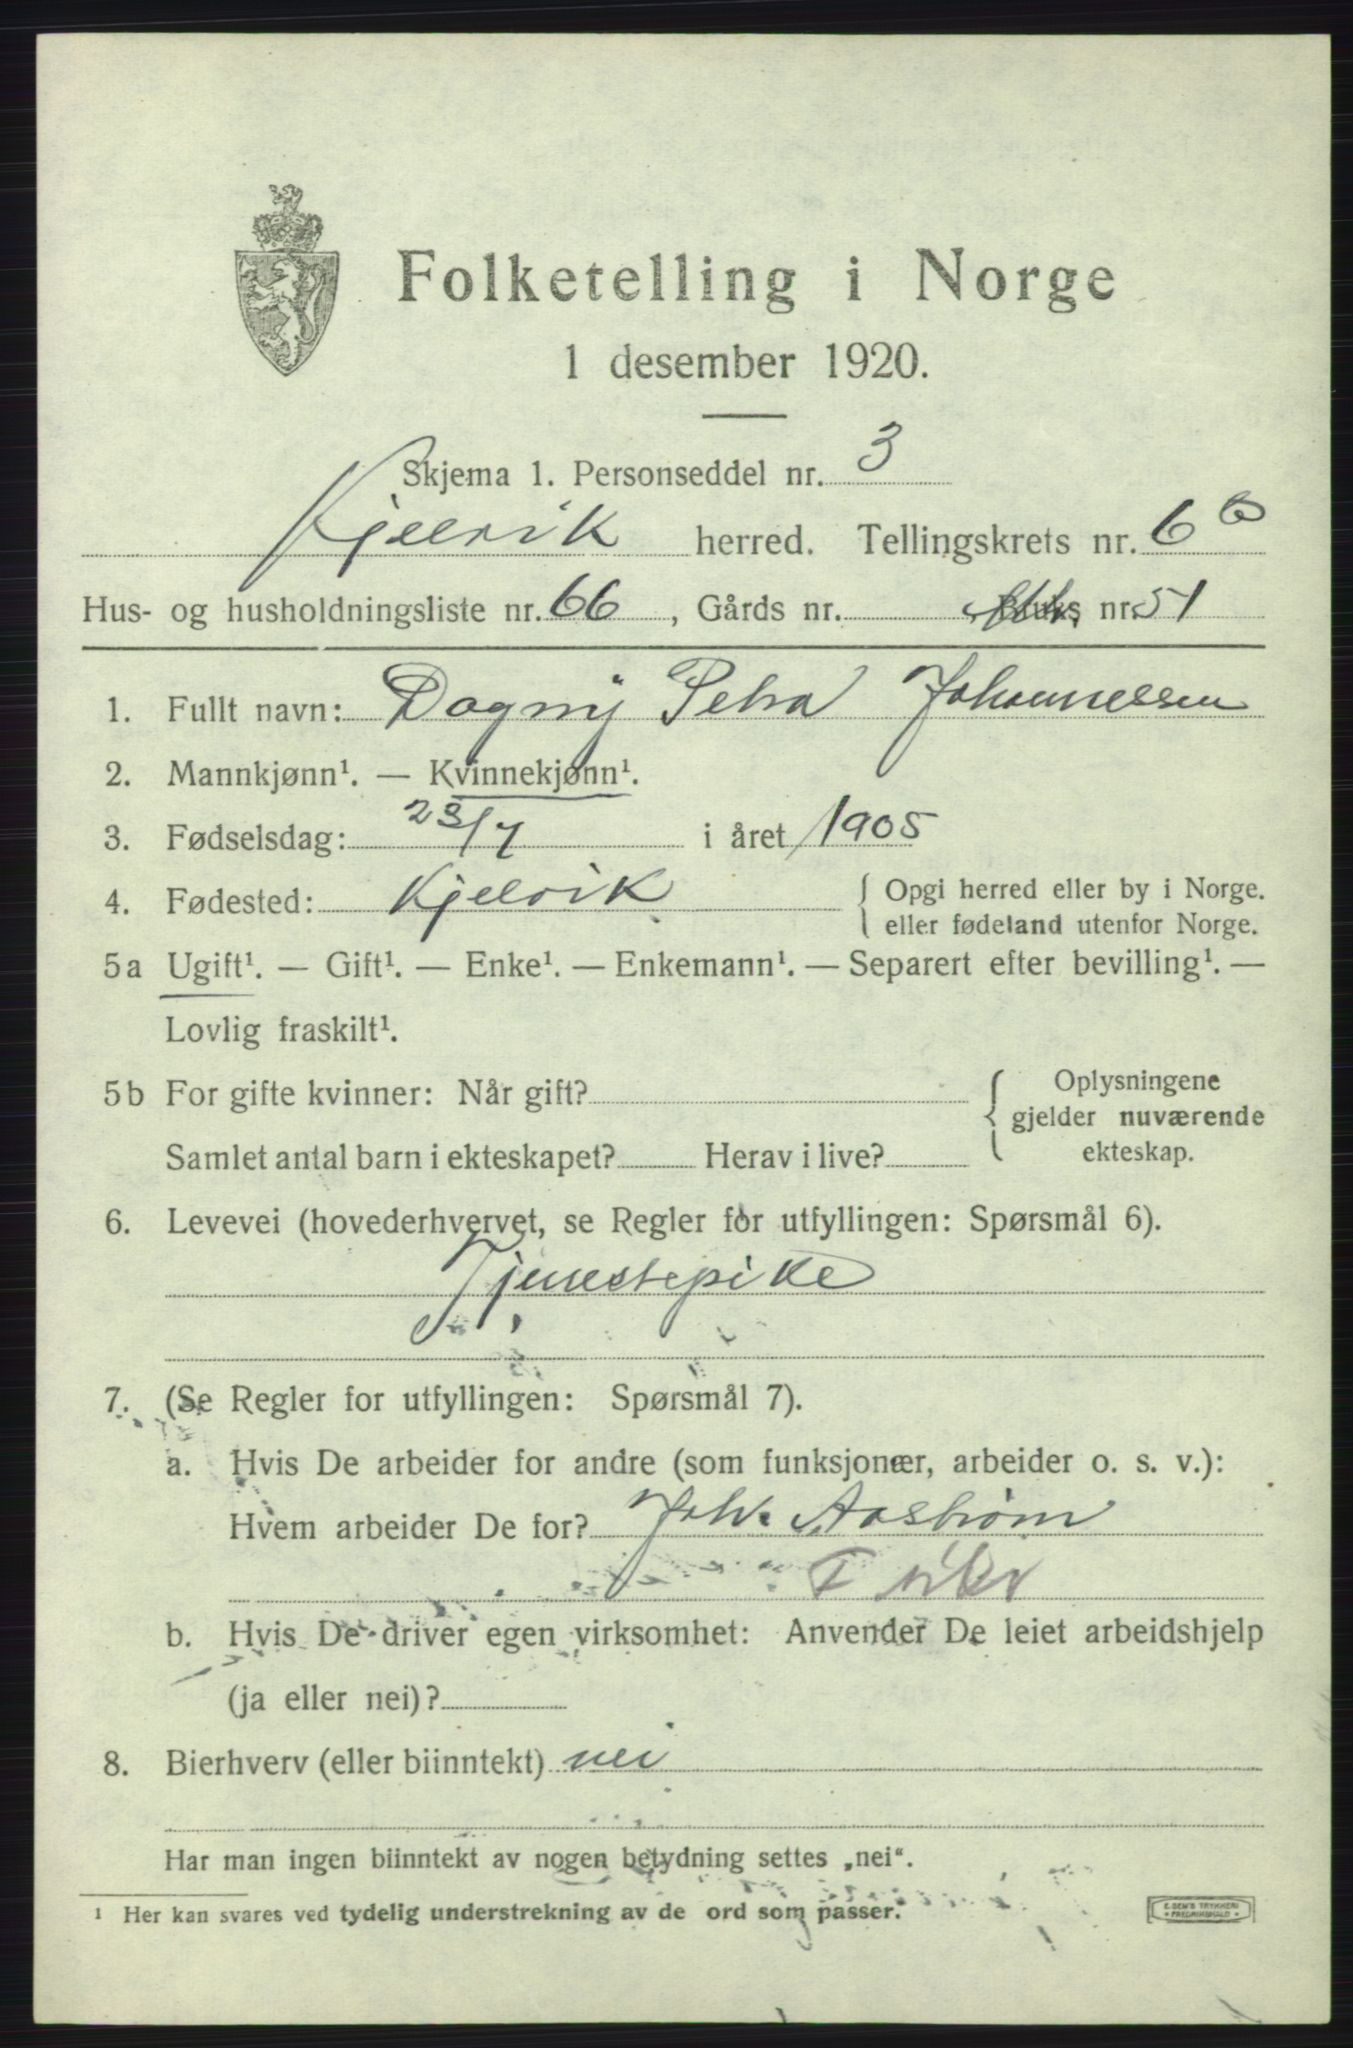 Folketelling i Norge
1 desember 1920.
Skjema 1. Personseddel nr. 3
Kjelvik herred. Tellingskrets nr. 6 b
Hus- og husholdningsliste nr. 66, Gårds nr. Bruks nr. 51
1. Fullt navn: Dagny Petra Johannessen
2. Mannkjønn¹. — Kvinnekjønn¹.
3. Fødselsdag: 23/7 i året 1905
4. Fødested: Kjelvik { Opgi herred eller by i Norge.
eller fødeland utenfor Norge.
5a Ugift¹. — Gift¹. — Enke¹. — Enkemann¹. — Separert efter bevilling¹. —
Lovlig fraskilt¹.
5b For gifte kvinner: Når gift?
Samlet antal barn i ekteskapet? Herav i live?
Oplysningene
gjelder nuværende
ekteskap.
6. Levevei (hovederhvervet, se Regler for utfyllingen: Spørsmål 6).
Tjenestepike
7. (Se Regler for utfyllingen: Spørsmål 7).
a. Hvis De arbeider for andre (som funksjonær, arbeider o. s. v.):
Hvem arbeider De for? Joh. Aastrøm
b. Hvis De driver egen virksomhet: Anvender De leiet arbeidshjelp
(ja eller nei)?
8. Bierhverv (eller biinntekt) nei
Har man ingen biinntekt av nogen betydning settes „nei“.
¹ Her kan svares ved tydelig understrekning av de ord som passer.
E. SEM'S TRYKKERI
FREDRIKSHALD